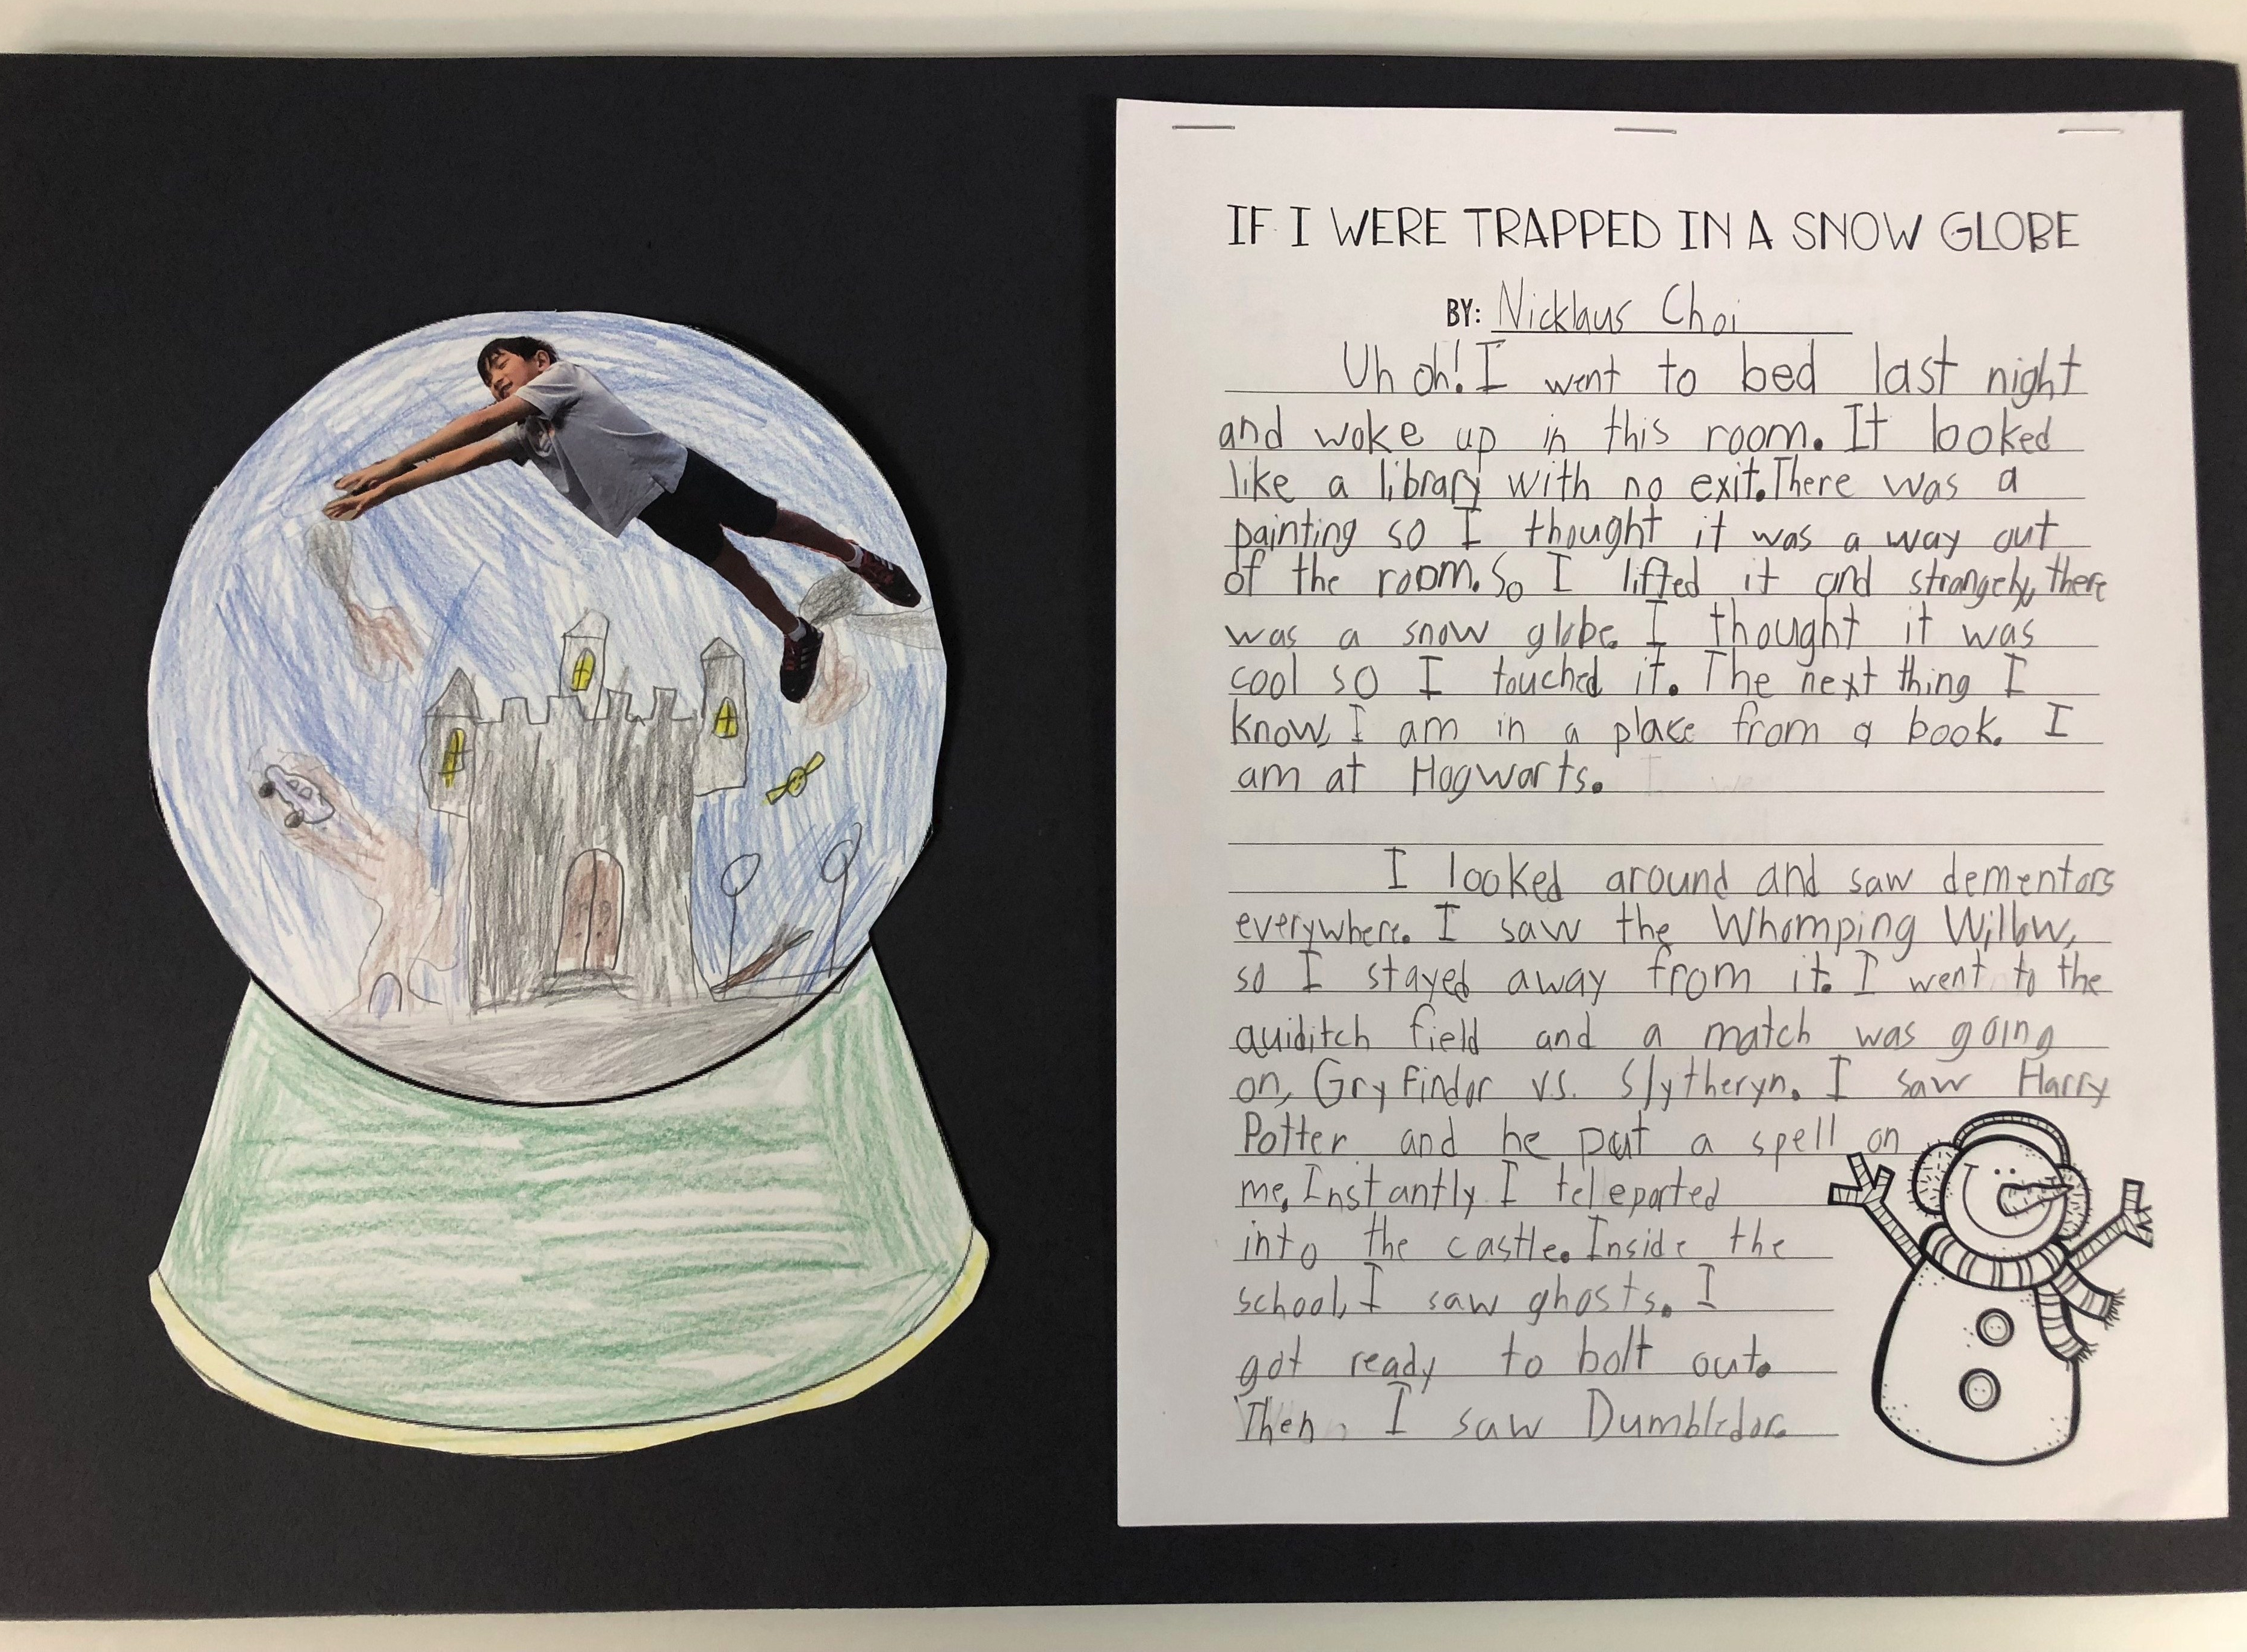 IF I WERE TRAPPED IN A SNOW GLOBE
BY: Nicklaus Choi
Uh oh! I went to bed last night
and woke up in this room. It looked
like a library with no exit. There was a
painting so I thought it was a way out
of the room. So I lifted it and strangely, there
was a snow globe. I thought it was
cool so I touched it. The next thing I
know, I am in a place from a book. I
am at Hogwarts.
I looked around and saw dementors
everywhere. I saw the Whomping Willow,
so I stayed away from it. I went to the
quiditch field and a match was going
on, Gryfindor vs. Slytheryn. I saw Harry
Potter and he put a spell on
me. Instantly I teleported
into the castle. Inside the
school, I saw ghosts. I
got ready to bolt out.
Then, I saw Dumbledor.